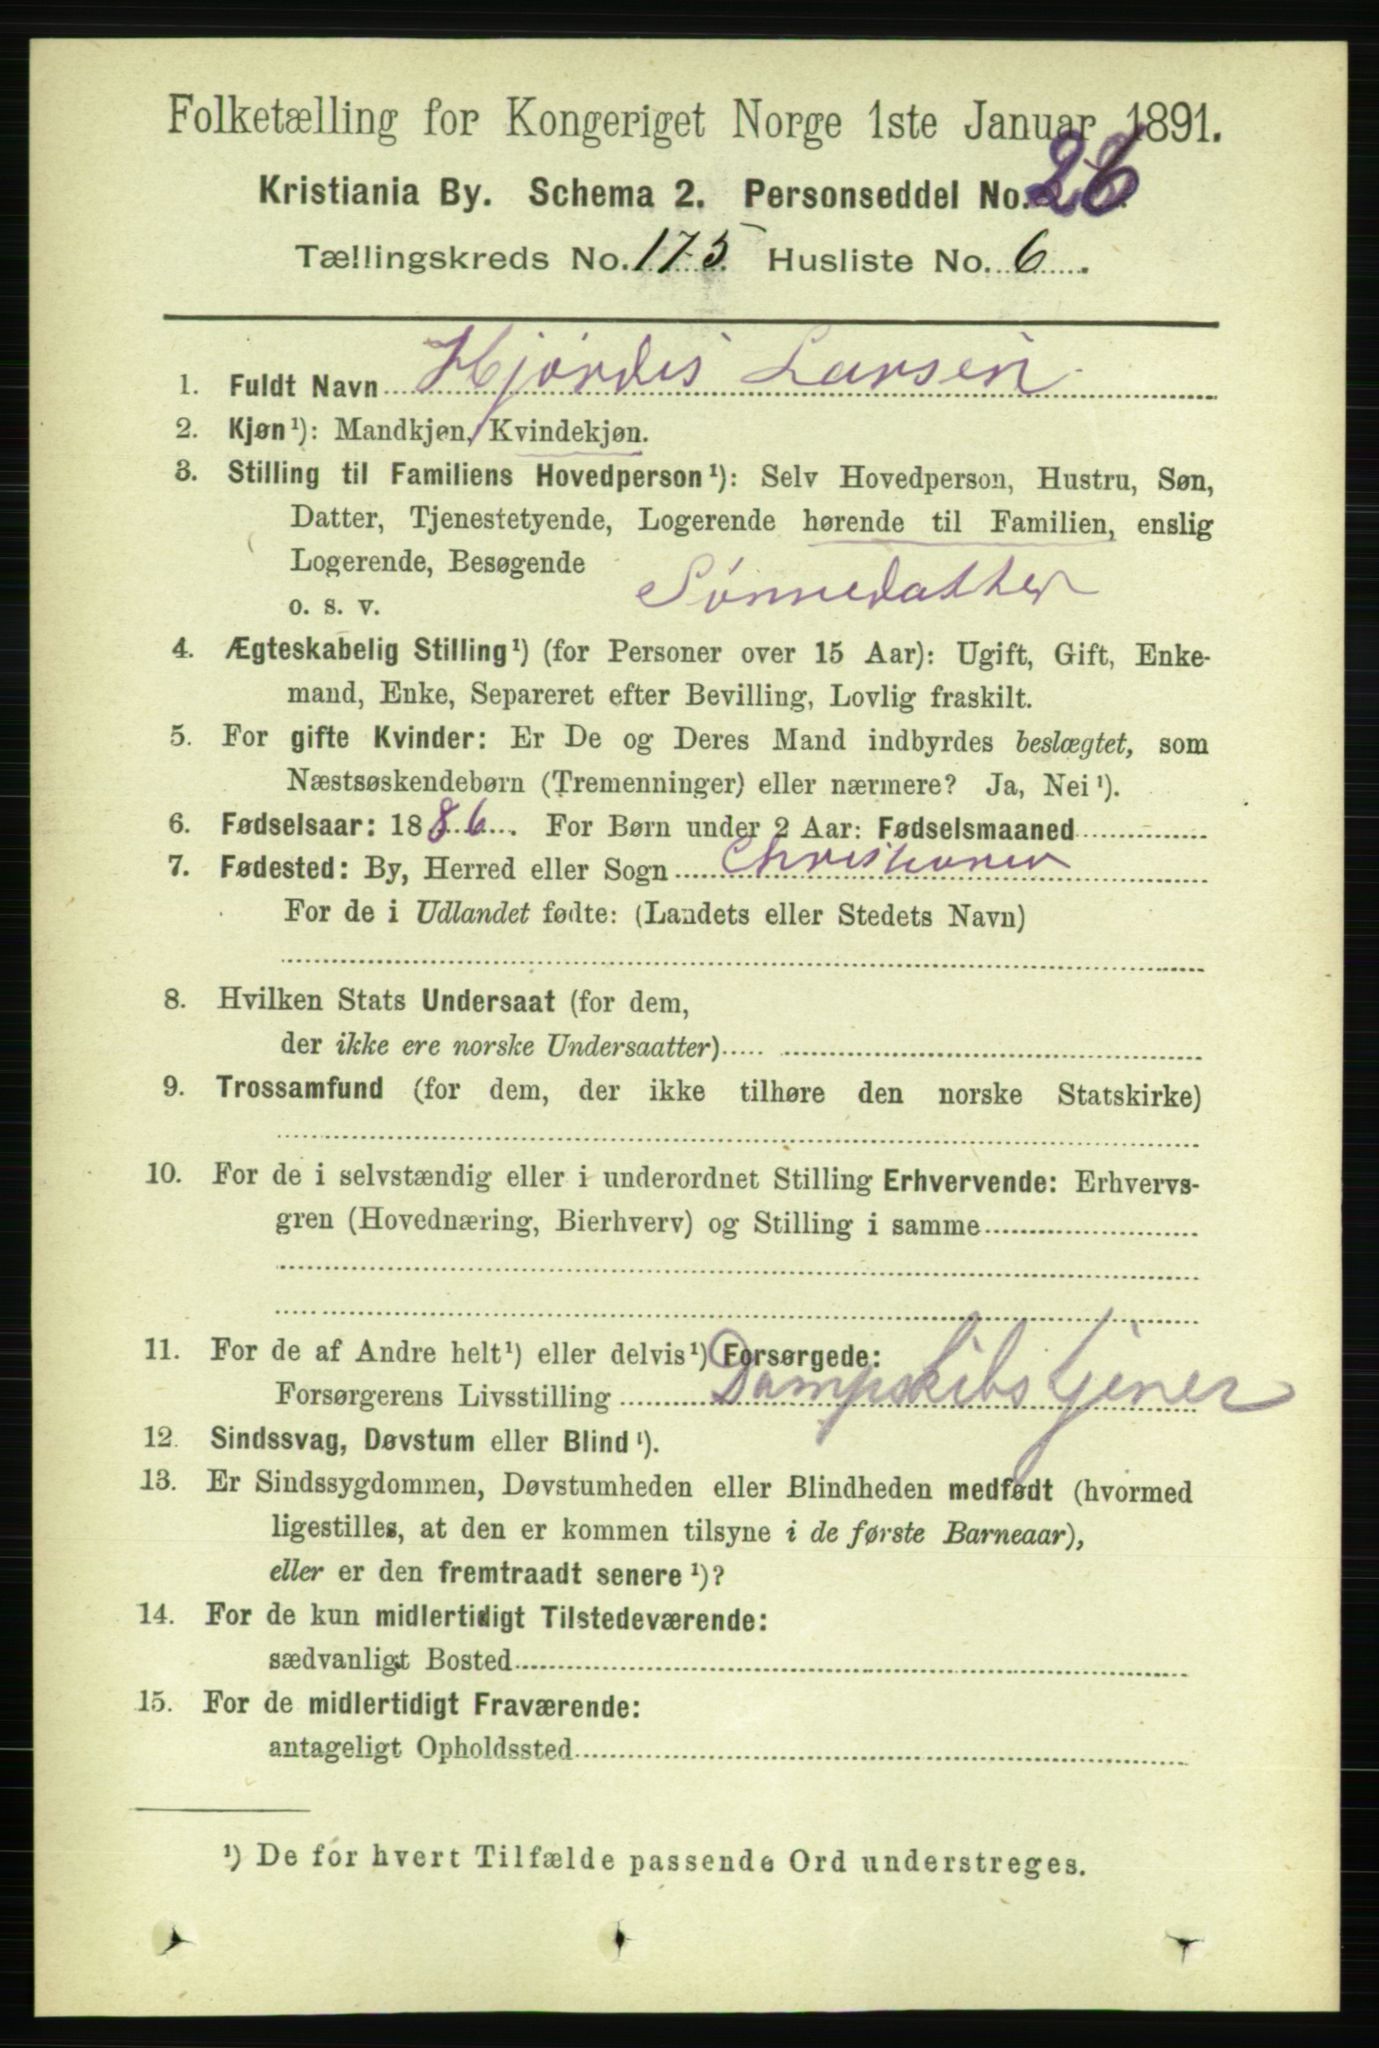 Folketælling for Kongeriget Norge 1ste Januar 1891.
Kristiania By. Schema 2. Personseddel No. 26.
Tællingskreds No. 175 Husliste No. 6.
1. Fuldt Navn Hjørdis Larsen
2. Kjøn¹): Mandkjøn, Kvindekjøn.
3. Stilling til Familiens Hovedperson¹): Selv Hovedperson, Hustru, Søn,
Datter, Tjenestetyende, Logerende hørende til Familien, enslig
Logerende, Besøgende
o. s. v. Sønnedatter
4. Ægteskabelig Stilling¹) (for Personer over 15 Aar): Ugift, Gift, Enke-
mand, Enke, Separeret efter Bevilling, Lovlig fraskilt.
5. For gifte Kvinder: Er De og Deres Mand indbyrdes beslægtet, som
Næstsøskendebørn (Tremenninger) eller nærmere? Ja, Nei¹).
6. Fødselsaar: 1886. For Børn under 2 Aar: Fødselsmaaned
7. Fødested: By, Herred eller Sogn Christiania
For de i Udlandet fødte: (Landets eller Stedets Navn)
8. Hvilken Stats Undersaat (for dem,
der ikke ere norske Undersaatter)
9. Trossamfund (for dem, der ikke tilhøre den norske Statskirke)
10. For de i selvstændig eller i underordnet Stilling Erhvervende: Erhvervs-
gren (Hovednæring, Bierhverv) og Stilling i samme
11. For de af Andre helt¹) eller delvis¹) Forsørgede:
Forsørgerens Livsstilling Dampskibstjener
12. Sindssvag, Døvstum eller Blind¹).
13. Er Sindssygdommen, Døvstumheden eller Blindheden medfødt (hvormed
ligestilles, at den er kommen tilsyne i de første Barneaar),
eller er den fremtraadt senere¹)?
14. For de kun midlertidigt Tilstedeværende:
sædvanligt Bosted
15. For de midlertidigt Fraværende:
antageligt Opholdssted
¹) De for hvert Tilfælde passende Ord understreges.